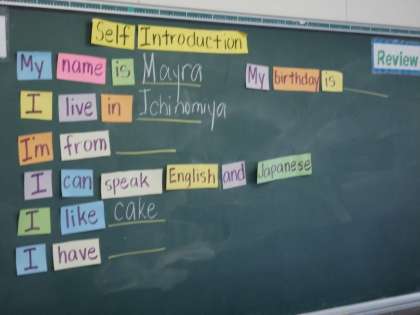 Self Introduction
Review
My name is Mayra
My birthday is
I live in Ichinomiya
I'm from
I can speak English and Japanese
I like cake
I have